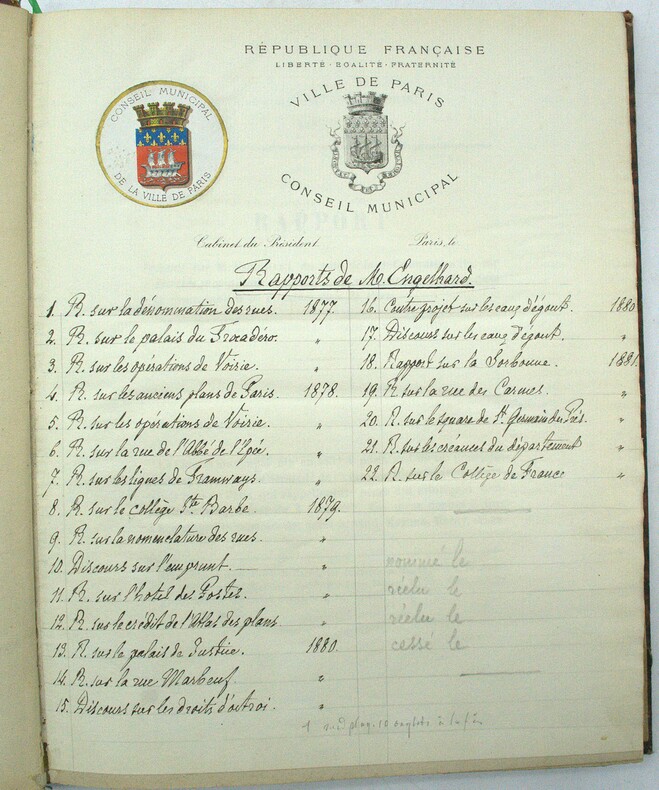 RÉPUBLIQUE FRANÇAISE
LIBERTÉ · EGALITÉ · FRATERNITÉ
CONSEIL MUNICIPAL
DE LA VILLE DE PARIS
VILLE DE PARIS
CONSEIL MUNICIPAL
Cabinet du Président
Paris, le
Rapports de M. Engelhard.
1. R. sur la dénomination des rues. 1877.
2. R. sur le palais du Trocadéro. "
3. R. sur les opérations de Voirie. "
4. R. sur les anciens plans de Paris. 1878.
5. R. sur les opérations de Voirie. "
6. R. sur la rue de l'Abbé de l'Epée. "
7. R. sur les lignes de Tramways. "
8. R. sur le collège Ste Barbe. 1879.
9. R. sur la nomenclature des rues. "
10. Discours sur l'emprunt. "
11. R. sur l'hotel des Postes. "
12. R. sur le crédit de l'Atlas des plans. "
13. R. sur le palais de Justice. 1880.
14. R. sur la rue Marbeuf. "
15. Discours sur les droits d'octroi. "
16. Contre projet sur les eaux d'égout. 1880
17. Discours sur les eaux d'égout. "
18. Rapport sur la Sorbonne. 1881.
19. R. sur la rue des Carmes. "
20. R. sur le square de St Germain des Prés. "
21. R. sur les créances du département "
22. R. sur le Collège de France "
nommé le
réélu le
réélu le
cessé le
10 onglets à la fin